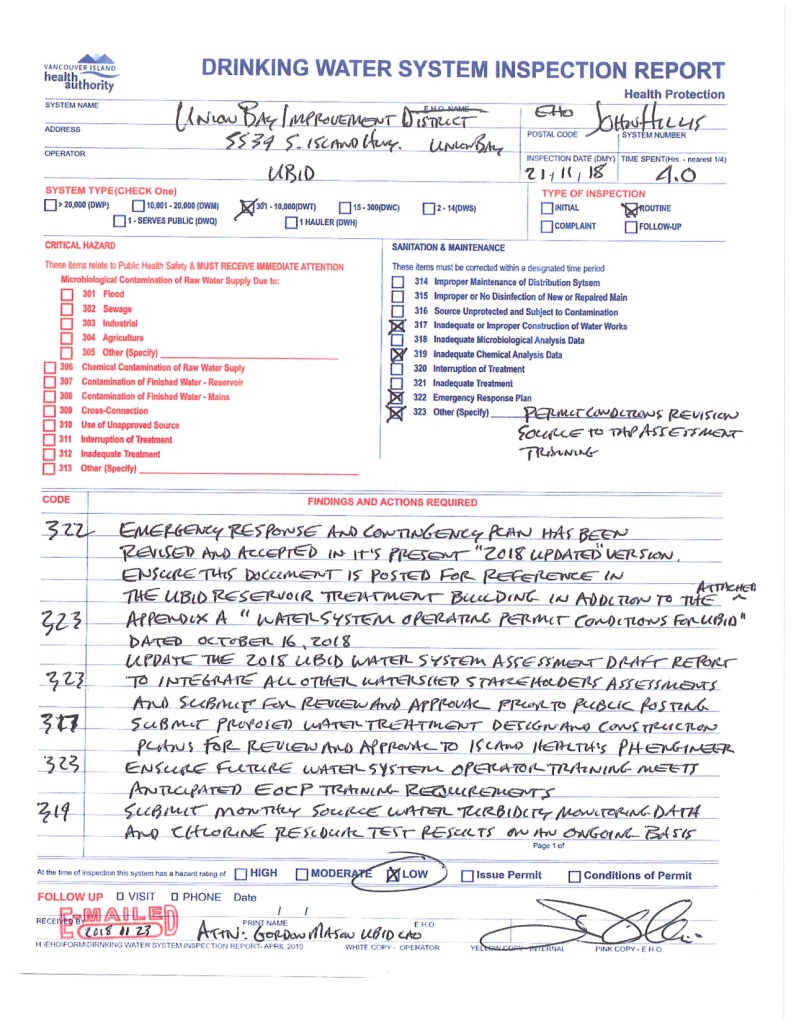 VANCOUVER ISLAND
health
authority
DRINKING WATER SYSTEM INSPECTION REPORT
Health Protection
SYSTEM NAME
E.H.O. NAME
UNION BAY IMPROVEMENT DISTRICT
EHO JOHN HILLIS
ADDRESS
5539 S. ISLAND HWY. UNION BAY
POSTAL CODE
SYSTEM NUMBER
OPERATOR
UBID
INSPECTION DATE (DMY)
21/11/18
TIME SPENT(Hrs. - nearest 1/4)
4.0
SYSTEM TYPE(CHECK One)
> 20,000 (DWP) 10,001 - 20,000 (DWM) 301 - 10,000(DWT) 15 - 300(DWC) 2 - 14(DWS)
1 - SERVES PUBLIC (DWQ) 1 HAULER (DWH)
TYPE OF INSPECTION
INITIAL ROUTINE
COMPLAINT FOLLOW-UP
CRITICAL HAZARD
These items relate to Public Health Safety & MUST RECEIVE IMMEDIATE ATTENTION
Microbiological Contamination of Raw Water Supply Due to:
301 Flood
302 Sewage
303 Industrial
304 Agriculture
305 Other (Specify)
306 Chemical Contamination of Raw Water Suply
307 Contamination of Finished Water - Reservoir
308 Contamination of Finished Water - Mains
309 Cross-Connection
310 Use of Unapproved Source
311 Interruption of Treatment
312 Inadequate Treatment
313 Other (Specify)
SANITATION & MAINTENANCE
These items must be corrected within a designated time period
314 Improper Maintenance of Distribution Sytsem
315 Improper or No Disinfection of New or Repaired Main
316 Source Unprotected and Subject to Contamination
317 Inadequate or Improper Construction of Water Works
318 Inadequate Microbiological Analysis Data
319 Inadequate Chemical Analysis Data
320 Interruption of Treatment
321 Inadequate Treatment
322 Emergency Response Plan
323 Other (Specify) PERMIT CONDITIONS REVISION
SOURCE TO TAP ASSESSMENT
TRAINING
CODE
FINDINGS AND ACTIONS REQUIRED
322 EMERGENCY RESPONSE AND CONTINGENCY PLAN HAS BEEN
REVISED AND ACCEPTED IN IT'S PRESENT "2018 UPDATED" VERSION.
ENSURE THIS DOCUMENT IS POSTED FOR REFERENCE IN
THE UBID RESERVOIR TREATMENT BUILDING IN ADDITION TO THE ^ ATTACHED
323 APPENDIX A "WATER SYSTEM OPERATING PERMIT CONDITIONS FOR UBID"
DATED OCTOBER 16, 2018
UPDATE THE 2018 UBID WATER SYSTEM ASSESSMENT DRAFT REPORT
323 TO INTEGRATE ALL OTHER WATERSHED STAKEHOLDERS ASSESSMENTS
AND SUBMIT FOR REVIEW AND APPROVAL PRIOR TO PUBLIC POSTING
317 SUBMIT PROPOSED WATER TREATMENT DESIGN AND CONSTRUCTION
PLANS FOR REVIEW AND APPROVAL TO ISLAND HEALTH'S PH ENGINEER
323 ENSURE FUTURE WATER SYSTEM OPERATOR TRAINING MEETS
ANTICIPATED EOCP TRAINING REQUIREMENTS
319 SUBMIT MONTHLY SOURCE WATER TURBIDITY MONITORING DATA
AND CHLORINE RESIDUAL TEST RESULTS ON AN ONGOING BASIS
Page 1 of
At the time of inspection this system has a hazard rating of HIGH MODERATE LOW Issue Permit Conditions of Permit
FOLLOW UP VISIT PHONE Date / /
RECEIVED BY
E-MAILED
2018 11 23
PRINT NAME
ATTN: GORDON MASON UBID CAO
E H O
H:\EHO\FORM\DIRNKING WATER SYSTEM INSPECTION REPORT- APRIL 2010
WHITE COPY - OPERATOR
YELLOW COPY - INTERNAL
PINK COPY - E H O